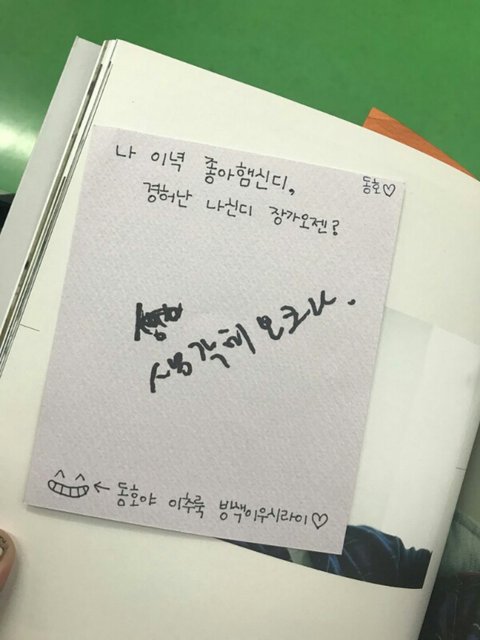 나 이녁 좋아햄신디,
동호♡
경허난 나신디 장가오젠?
생각해보크나.
← 동호야 이추룩 방색이우시라이♡